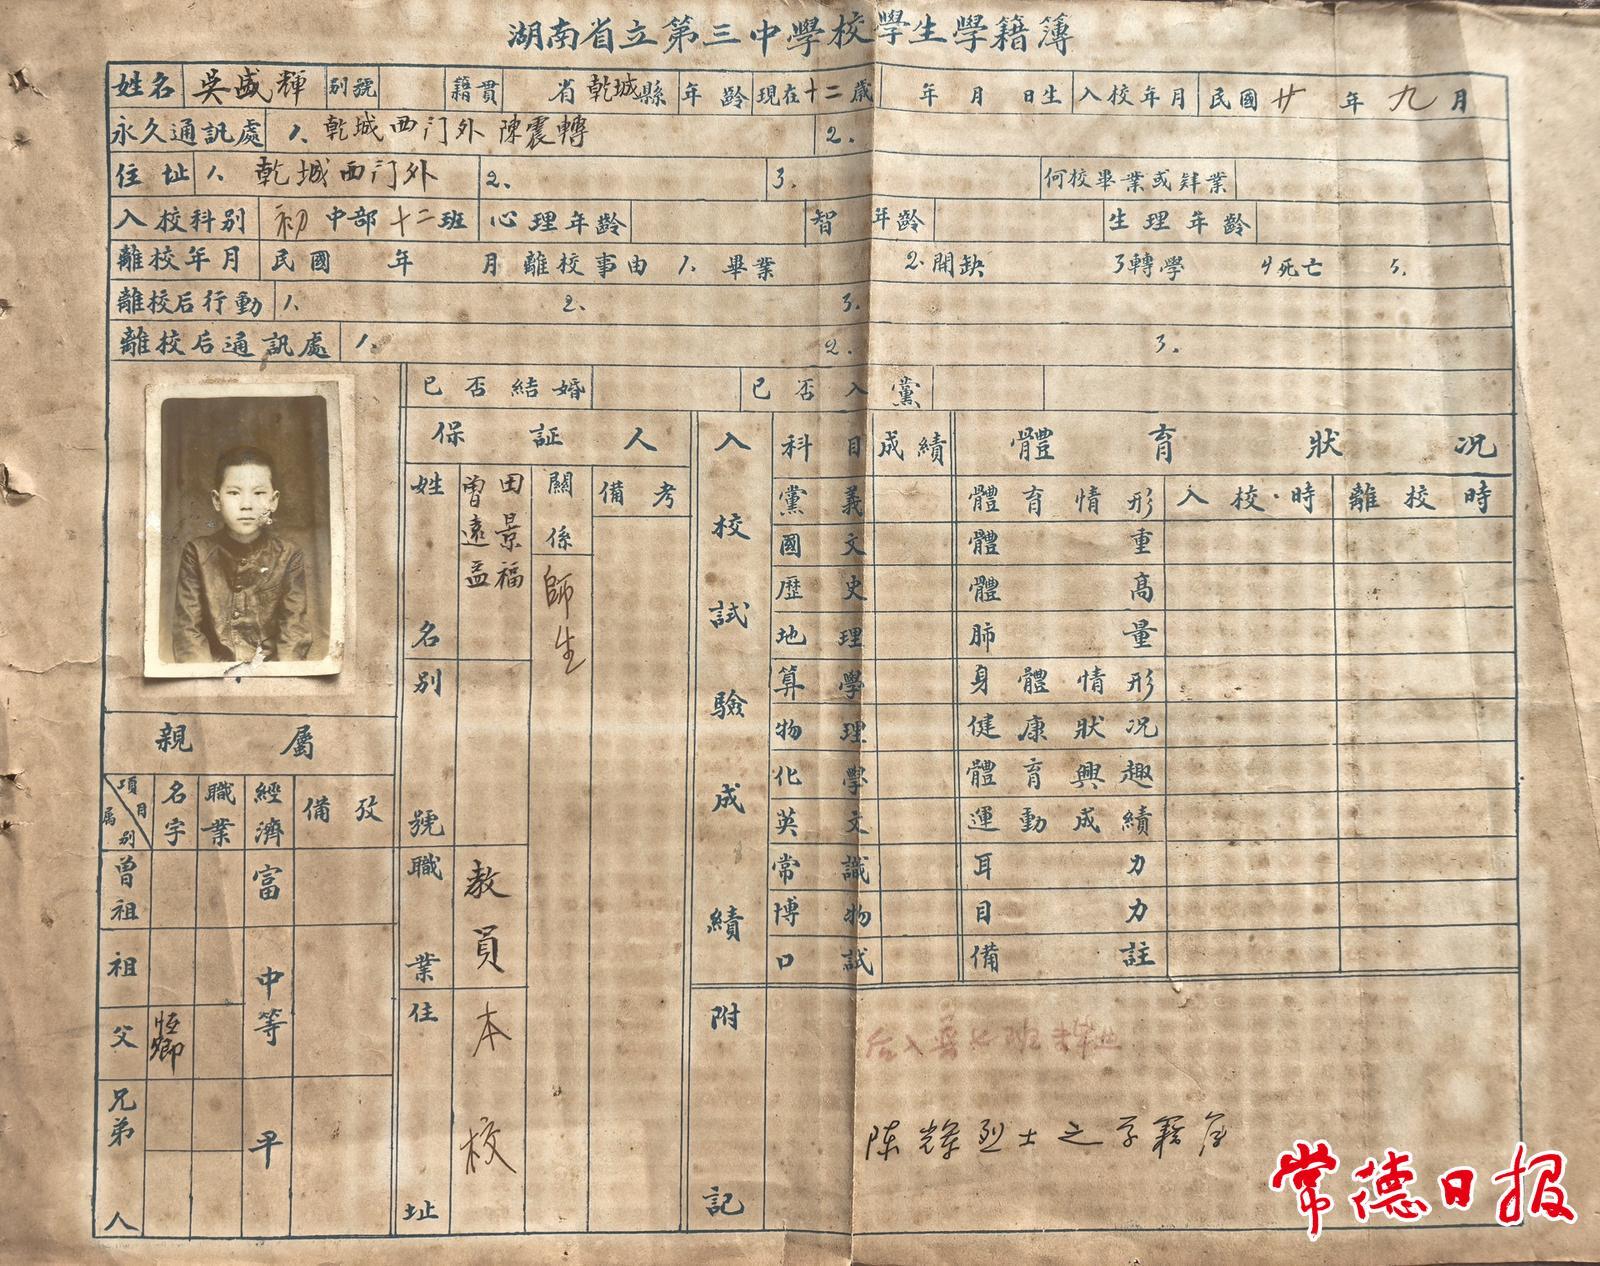 湖南省立第三中學校學生學籍簿
姓名 吳盛輝 別號 籍貫 省乾城縣 年齡 現在十二歲 年 月 日生 入校年月 民國廿年九月
永久通訊處 1. 乾城西门外陳震轉 2.
住址 1. 乾城西门外 2. 3. 何校畢業或肄業
入校科別 初中部十二班 心理年齡 智 年齡 生理年齡
離校年月 民國 年 月 離校事由 1. 畢業 2. 開缺 3 轉學 4 死亡 5.
離校后行動 1. 2. 3.
離校后通訊處 1. 2. 3.
已否結婚 已否入黨
保証人
姓名 曾遠益 田景福
別號
職業 教員
住址 本校
關係 師生
備考
入校試驗成績
科目 成績
黨義
國文
歷史
地理
算學
物理
化學
英文
常識
博物
口試
體育狀況
體育情形 入校時 離校時
體重
體高
肺量
身體情形
健康狀況
體育興趣
運動成績
耳力
目力
備註
親屬
項目 屬別 名字 職業 經濟 備攷
曾祖
祖
父 恆卿
兄弟
人
富 中等 平
附記
陈辉烈士之学籍
常德日报